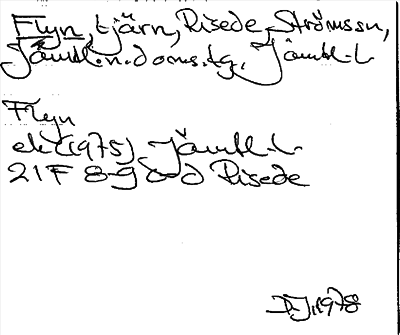 Flyn, tjärn, Risede, Strömssn,
Jämtl.n.doms.tg, Jämtl.l
Flyn
ek (1975) Jämtl-l
21F 8-9 Risede
1978